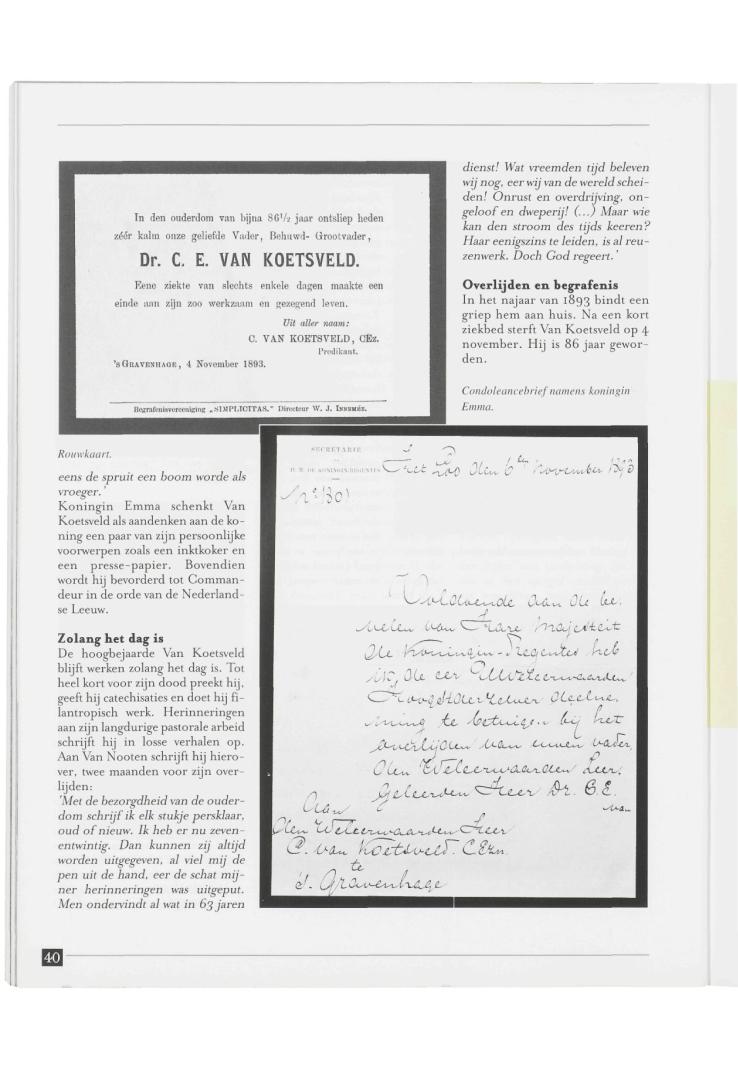 In den ouderdom van bijna 86½ jaar ontsliep heden
zéér kalm onze geliefde Vader, Behuwd- Grootvader,
Dr. C. E. VAN KOETSVELD.
Eene ziekte van slechts enkele dagen maakte een
einde aan zijn zoo werkzaam en gezegend leven.
Uit aller naam:
C. VAN KOETSVELD, CEz.
Predikant.
'S GRAVENHAGE, 4 November 1893.
Begrafenisvereeniging „SIMPLICITAS." Directeur W. J. INNEMÉE.
Rouwkaart.
eens de spruit een boom worde als
vroeger.'
Koningin Emma schenkt Van
Koetsveld als aandenken aan de ko-
ning een paar van zijn persoonlijke
voorwerpen zoals een inktkoker en
een presse-papier. Bovendien
wordt hij bevorderd tot Comman-
deur in de orde van de Nederland-
se Leeuw.
Zolang het dag is
De hoogbejaarde Van Koetsveld
blijft werken zolang het dag is. Tot
heel kort voor zijn dood preekt hij,
geeft hij catechisaties en doet hij fi-
lantropisch werk. Herinneringen
aan zijn langdurige pastorale arbeid
schrijft hij in losse verhalen op.
Aan Van Nooten schrijft hij hiero-
ver, twee maanden voor zijn over-
lijden:
'Met de bezorgdheid van de ouder-
dom schrijf ik elk stukje persklaar,
oud of nieuw. Ik heb er nu zeven-
entwintig. Dan kunnen zij altijd
worden uitgegeven, al viel mij de
pen uit de hand, eer de schat mij-
ner herinneringen was uitgeput.
Men ondervindt al wat in 63 jaren
dienst! Wat vreemden tijd beleven
wij nog, eer wij van de wereld schei-
den! Onrust en overdrijving, on-
geloof en dweperij! (...) Maar wie
kan den stroom des tijds keeren?
Haar eenigszins te leiden, is al reu-
zenwerk. Doch God regeert.'
Overlijden en begrafenis
In het najaar van 1893 bindt een
griep hem aan huis. Na een kort
ziekbed sterft Van Koetsveld op 4
november. Hij is 86 jaar gewor-
den.
Condoleancebrief namens koningin
Emma.
SECRETARIE
H. M. DE KONINGIN-REGENTES
Het Loo den 6den November 1893
No 1301
Voldoende aan de be-
velen van Hare Majesteit
de Koningin-Regentes heb
ik de eer UWeleerwaarden
Hoogstderzelver deelne-
ming te betuigen bij het
overlijden van uwen vader,
den Weleerwaarden Zeer-
Geleerden Heer Dr. C. E.
van
Aan
den Weleerwaarden Heer
C. van Koetsveld. CEzn.
te
's Gravenhage
40